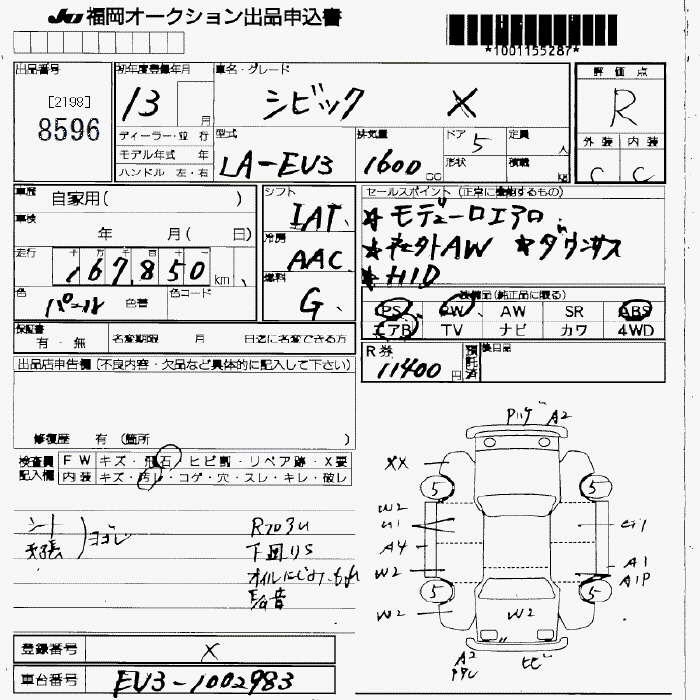 JU 福岡オークション出品申込書
*1001155287*
出品番号
[2198]
8596
初年度登録年月
13 月
ディーラー・並 行
モデル年式 年
ハンドル 左・右
車名・グレード
シビック X
型式
LA-EV3
排気量
1600 CC
ドア 5
形状
定員 人
積載 kg
評価点
R
外装 内装
C C
車歴
自家用( )
車検
年 月( 日)
走行
167,850 km
色
パール 色番
色コード
シフト
IAT
冷房
AAC
燃料
G
セールスポイント (正常に機能するもの)
★ モデューロエアロ
★ 社外AW ★ ダウンサス
★ HID
装備品(純正品に限る)
PS PW AW SR ABS
エアB TV ナビ カワ 4WD
保証書
有・無
名変期限 月 日迄に名変できる方
R券
11400 円
預託済
後日品
出品店申告欄(不良内容・欠品など具体的に記入して下さい)
修復歴 有 (箇所 )
検査員記入欄
FW キズ・飛石・ヒビ割・リペア跡・X要
内装 キズ・汚レ・コゲ・穴・スレ・キレ・破レ
シート
天張 ) ヨゴレ
下回りS
オイルにじみ・もれ
A2
XX
5 5
W2
A4
W2
W2
G1
A1
A1P
5 5
W2
A2
ヒビ
登録番号 X
車台番号 EV3-1002983